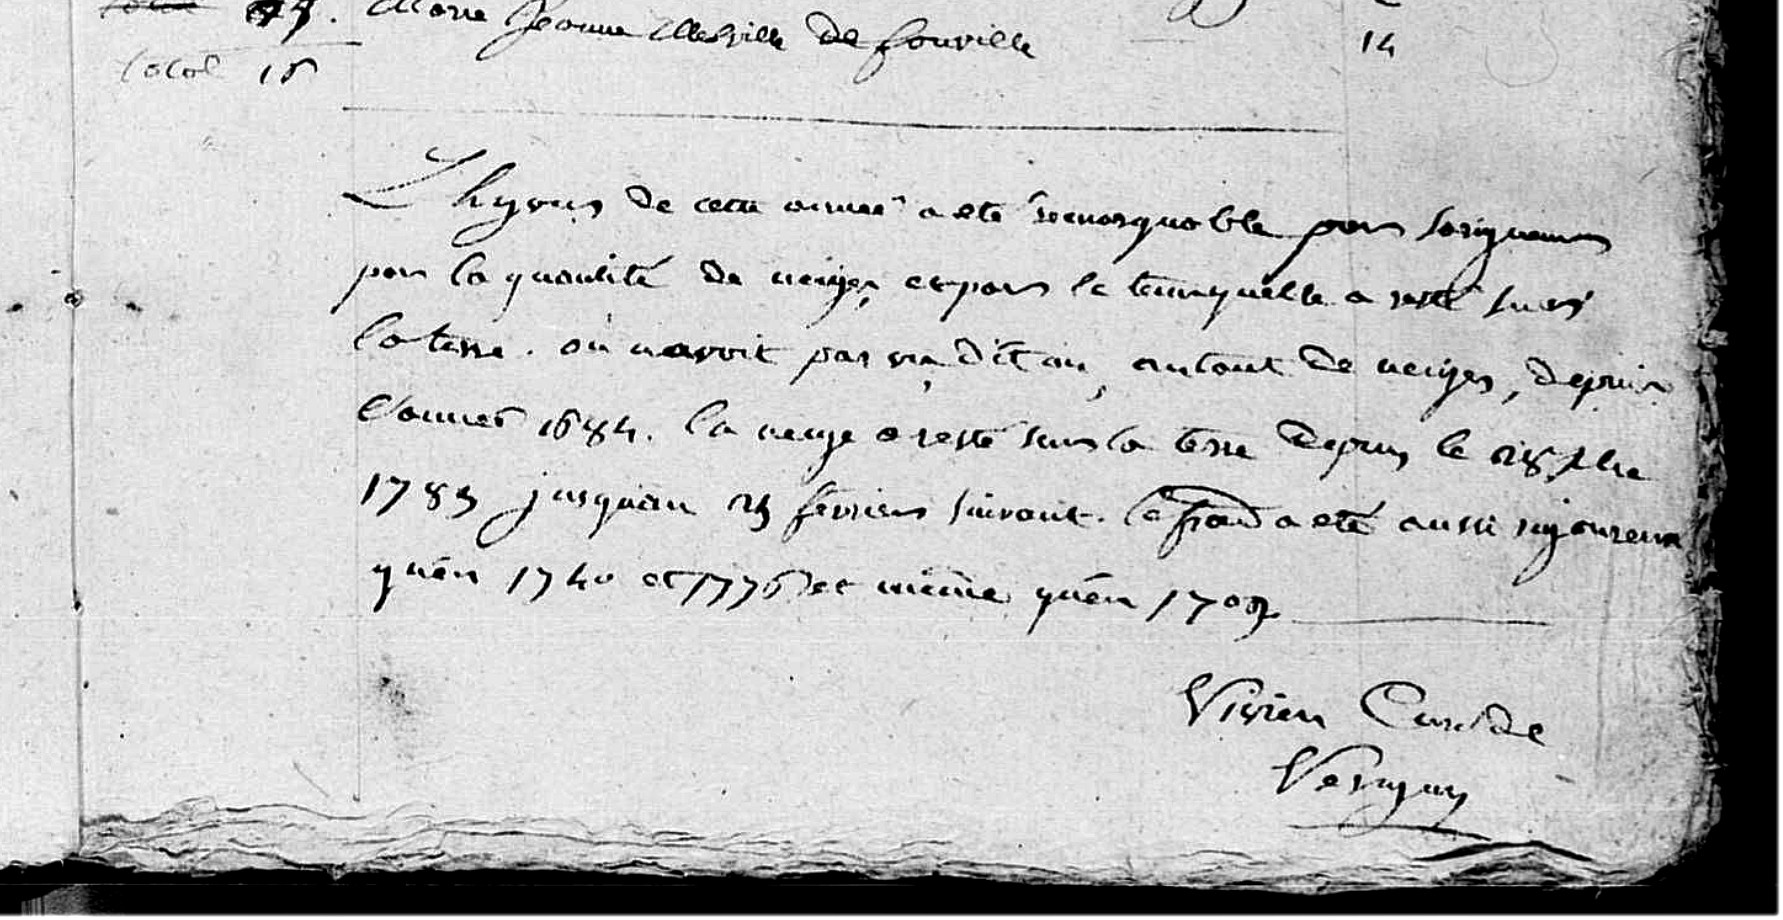 17. Marie Jeanne Mesville de fonville 14
total 16
L'hyvers de cette année a eté remarquable par sa rigueurs
par la quantité de neiges, et par le tems qu'elle a resté surs
la terre. on n'avoit pas vu, dit on, autant de neiges, depuis
L'année 1684. la neige a resté sur la terre depuis le 28 xbre
1783 jusquau 23 fevriers suivant. le froid a eté aussi rigoureux
qu'en 1740 et 1776 et même qu'en 1709
Vivien Curé de
Verigny